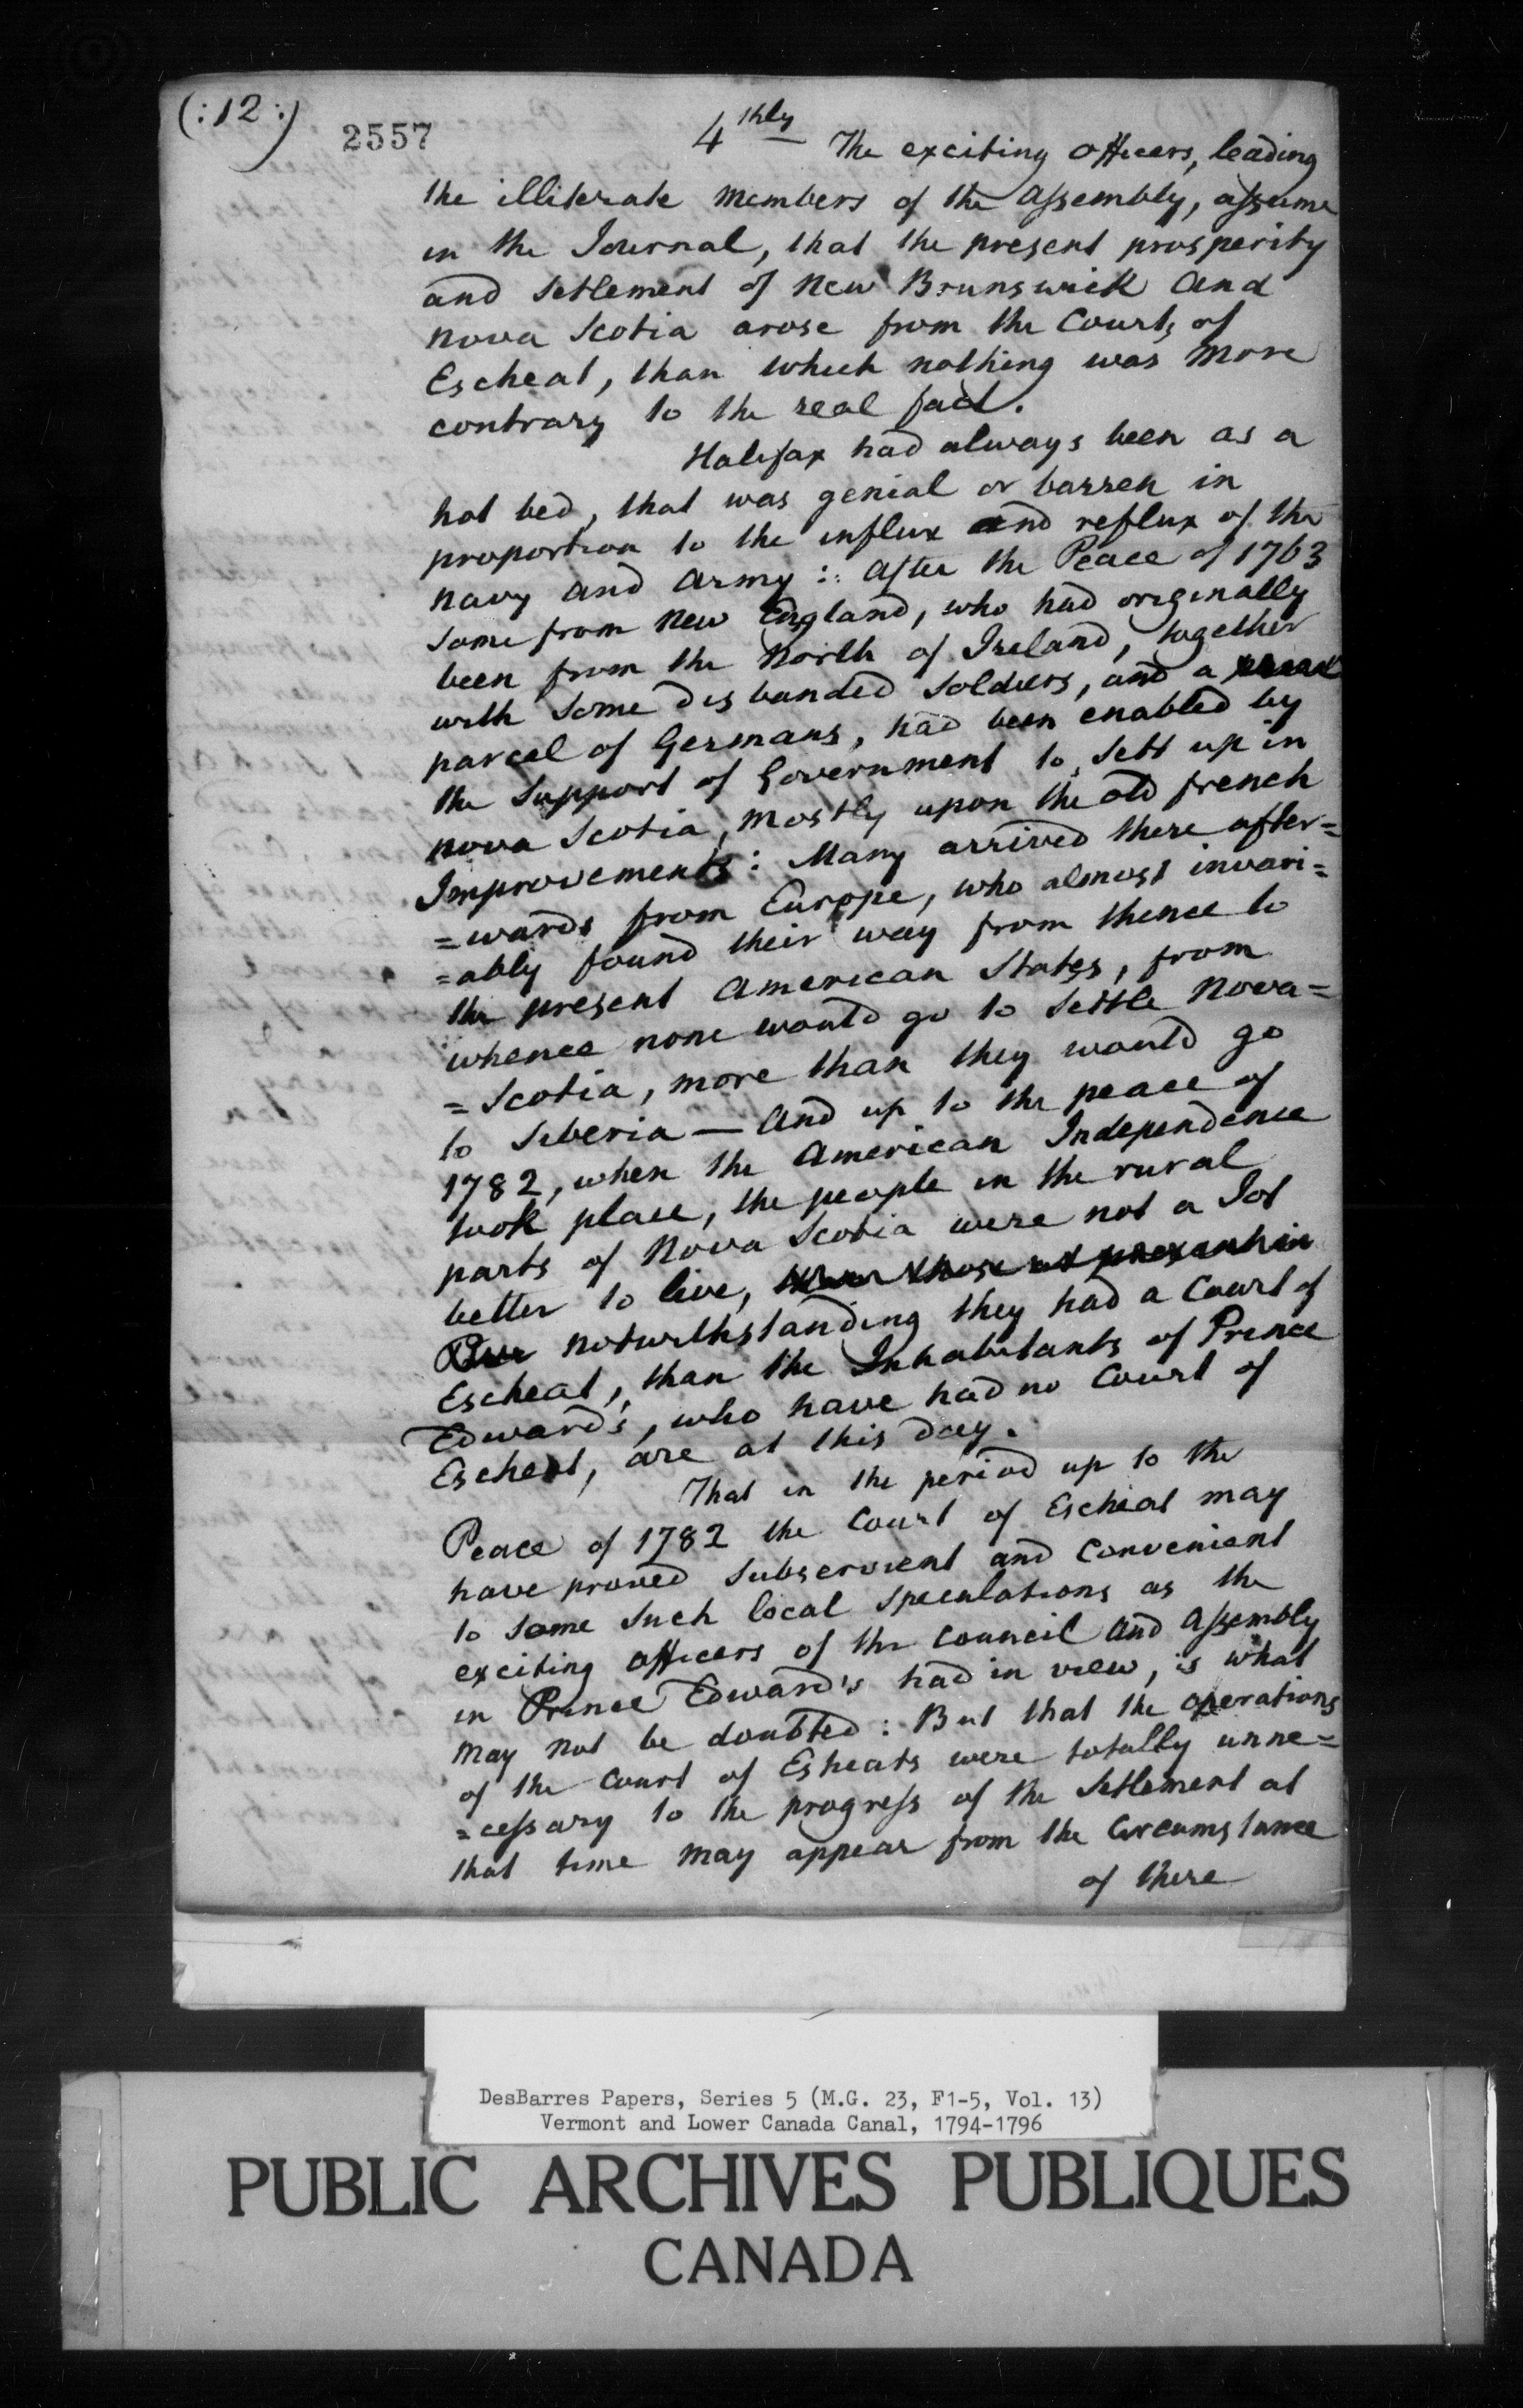 (:12:)
2557
4thly The exciting officers, leading
the illiterate members of the Assembly, assume
in the Journal, that the present prosperity
and Setlement of New Brunswick and
Nova Scotia arose from the Courts of
Escheat, than which nothing was more
contrary to the real fact.
Halifax had always been as a
hot bed, that was genial or barren in
proportion to the influx and reflux of the
navy and army :. After the Peace of 1763
some from New England, who had originally
been from the North of Ireland, together
with some disbanded Soldiers, and a
parcel of Germans, had been enabled by
the Support of Government to Sett up in
Nova Scotia, mostly upon the old french
Improvements: Many arrived there after=
=wards from Europe, who almost invari=
=ably found their way from thence to
the present American States, from
whence none would go to Settle Nova=
=Scotia, more than they would go
to Siberia — And up to the peace of
1782, when the American Independence
took place, the people in the rural
parts of Nova Scotia were not a Jot
better to live, than those at present in
notwithstanding they had a Court of
Escheat, than the Inhabitants of Prince
Edward's, who have had no Court of
Escheat, are at this day.
That in the period up to the
Peace of 1782 the Court of Escheat may
have proved Subservient and convenient
to some such local Speculations as the
exciting officers of the Council and Assembly
in Prince Edward's had in view, is what
may not be doubted: But that the operations
of the Court of Esheats were totally unne=
=cessary to the progress of the Setlement at
that time may appear from the Circumstance
of there
DesBarres Papers, Series 5 (M.G. 23, F1-5, Vol. 13)
Vermont and Lower Canada Canal, 1794-1796
PUBLIC ARCHIVES PUBLIQUES
CANADA